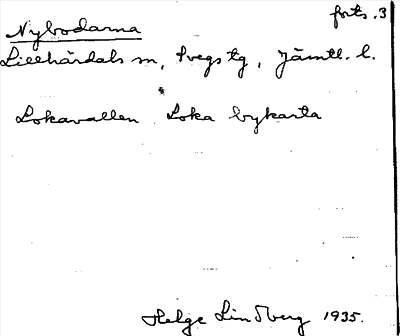 forts. 3
Nybodarna
Lillhärdals sn, Svegs tg, Jämtl. l.
Lokavallen Loka bykarta
Helge Lindberg 1935.